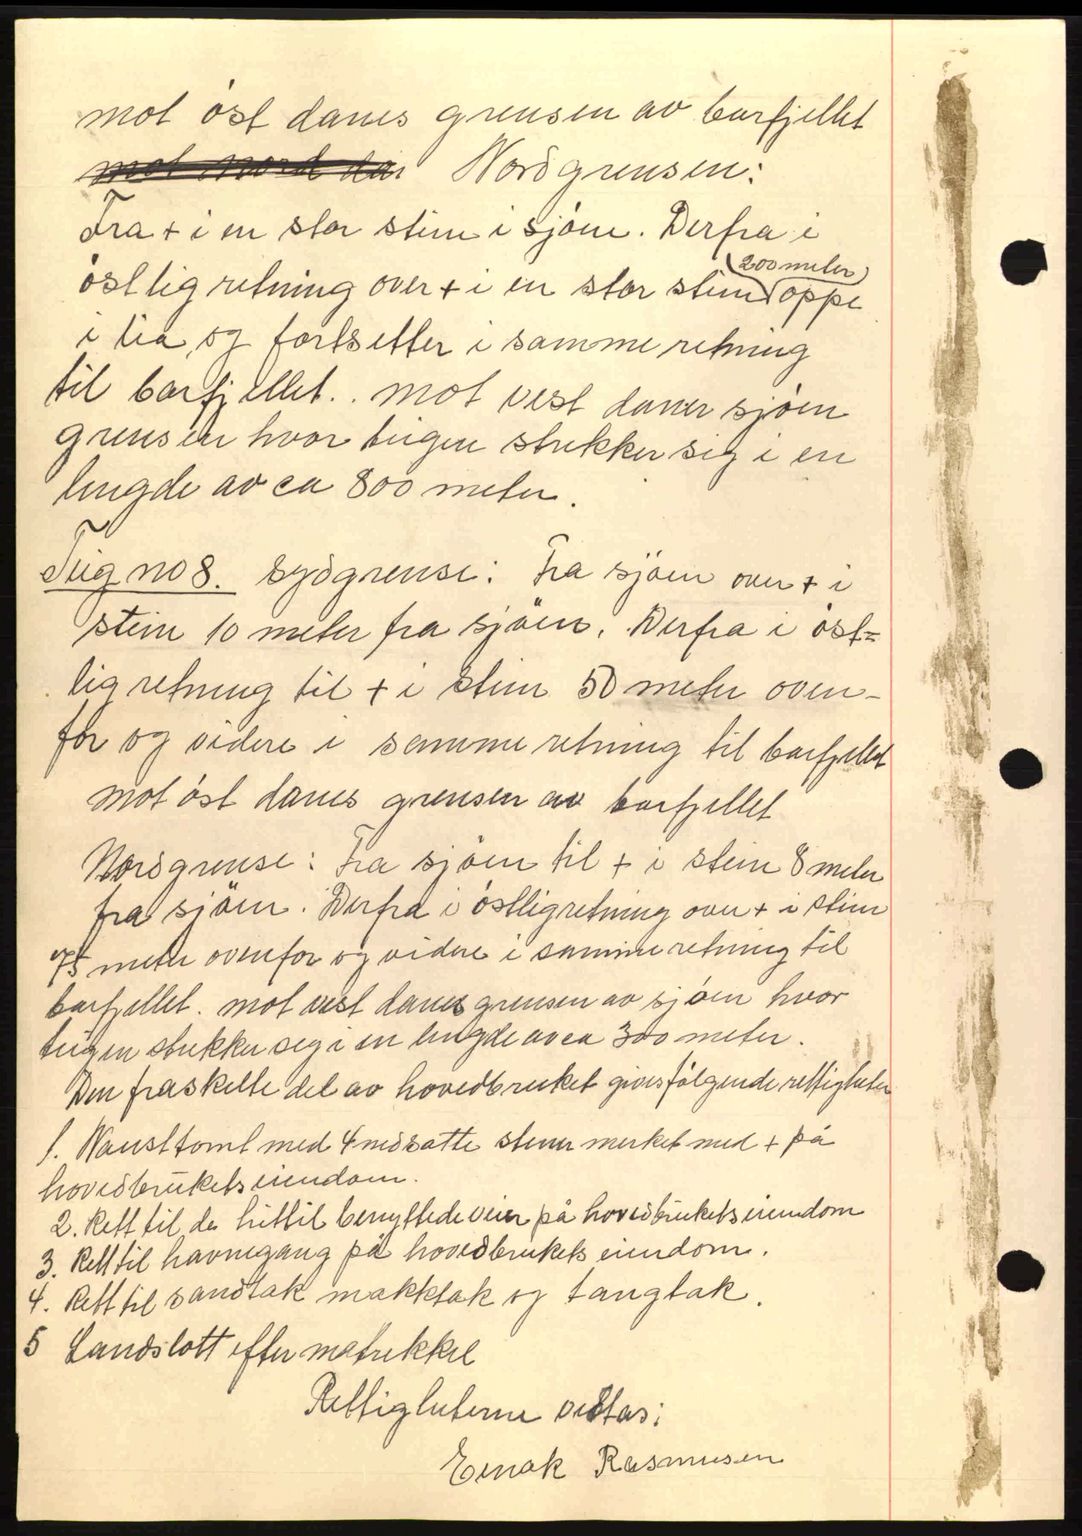 mot öst danes grensen av barfjellet
mot nord dan Nordgrensen:
Fra + i en stor stein i sjöen. Derfra i
östlig retning over + i en stor stein (200 meter) oppe
i lia og fortsetter i samme retning
til barfjellet. mot vest daner sjöen
grensen hvor teigen strekker sig i en
lengde av ca 800 meter.
Teig no 8. Sydgrense: Fra sjöen over + i
stein 10 meter fra sjöen. Derfra i öst=
lig retning til + i stein 50 meter oven-
for og videre i samme retning til barfjellet
mot öst danes grensen av barfjellet
Nordgrense: Fra sjöen til + i stein 8 meter
fra sjöen. Derfra i östlig retning over + i stein
75 meter ovenfor og videre i samme retning til
barfjellet. mot vest danes grensen av sjöen hvor
teigen strekker seg i en lengde av ca 300 meter.
Den fraskelte del av hovedbruket gives fölgende rettigheter
1. Nausttomt med 4 nedsatte steiner merket med + på
hovedbrukets eiendom.
2. Rett til de hittil benyttede veier på hovedbrukets eiendom
3. Rett til havnegang på hovedbrukets eiendom.
4. Rett til sandtak makktak og tangtak.
5 Landslott efter matrekkel
Rettigheterne vedtas:
Einak Rasmusen